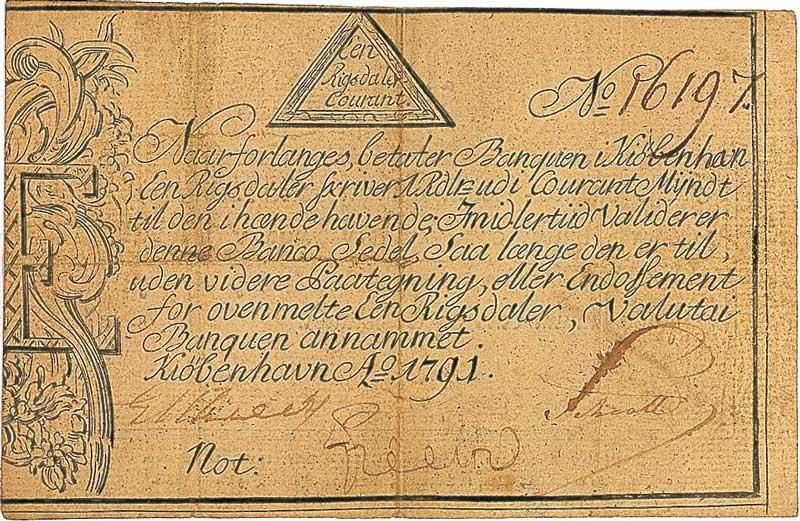 Een
Rigsdaler
Courant.
No 16197.
Naar forlanges, betaler Banquen i Kiøbenhavn
Een Rigsdaler skriver 1 Rdlr udi Courant Myndt
til den ihændehavende; Imidlertiid Validerer
denne Banco Sedel, Saa længe den er til,
uden videre Paategning, eller Endossement
for ovenmelte Een Rigsdaler, Valuta i
Banquen annammet.
Kiøbenhavn Ao. 1791.
Not:
E